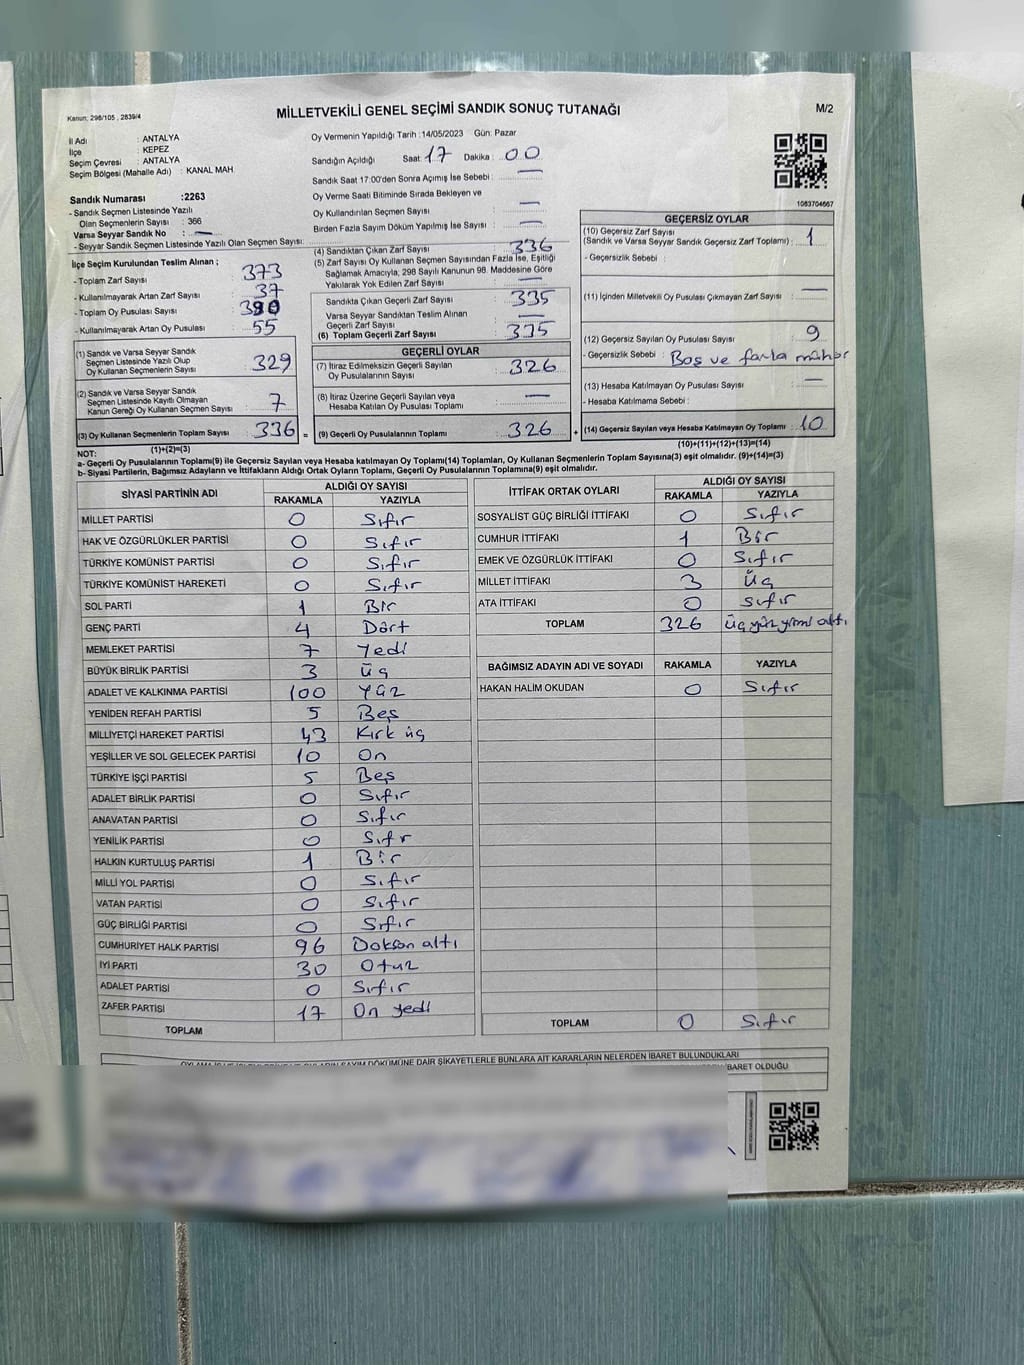 Kanun: 298/105 , 2839/4
MİLLETVEKİLİ GENEL SEÇİMİ SANDIK SONUÇ TUTANAĞI
M/2
İl Adı : ANTALYA
İlçe : KEPEZ
Seçim Çevresi : ANTALYA
Seçim Bölgesi (Mahalle Adı) : KANAL MAH.
Sandık Numarası :2263
- Sandık Seçmen Listesinde Yazılı
Olan Seçmenlerin Sayısı : 366
Varsa Seyyar Sandık No : —
- Seyyar Sandık Seçmen Listesinde Yazılı Olan Seçmen Sayısı:
Oy Vermenin Yapıldığı Tarih :14/05/2023 Gün: Pazar
Sandığın Açıldığı Saat: 17 Dakika : 00
Sandık Saat 17.00'den Sonra Açılmış İse Sebebi : —
Oy Verme Saati Bitiminde Sırada Bekleyen ve
Oy Kullandırılan Seçmen Sayısı : —
Birden Fazla Sayım Döküm Yapılmış İse Sayısı : —
1083704667
İlçe Seçim Kurulundan Teslim Alınan ;
- Toplam Zarf Sayısı : 373
- Kullanılmayarak Artan Zarf Sayısı : 37
- Toplam Oy Pusulası Sayısı : 390
- Kullanılmayarak Artan Oy Pusulası : 55
(1) Sandık ve Varsa Seyyar Sandık
Seçmen Listesinde Yazılı Olup
Oy Kullanan Seçmenlerin Sayısı : 329
(2) Sandık ve Varsa Seyyar Sandık
Seçmen Listesinde Kayıtlı Olmayan
Kanun Gereği Oy Kullanan Seçmen Sayısı : 7
(3) Oy Kullanan Seçmenlerin Toplam Sayısı : 336 =
(4) Sandıktan Çıkan Zarf Sayısı : 336
(5) Zarf Sayısı Oy Kullanan Seçmen Sayısından Fazla İse, Eşitliği
Sağlamak Amacıyla, 298 Sayılı Kanunun 98. Maddesine Göre
Yakılarak Yok Edilen Zarf Sayısı : —
Sandıkta Çıkan Geçerli Zarf Sayısı : 335
Varsa Seyyar Sandıktan Teslim Alınan
Geçerli Zarf Sayısı : —
(6) Toplam Geçerli Zarf Sayısı : 335
GEÇERLİ OYLAR
(7) İtiraz Edilmeksizin Geçerli Sayılan
Oy Pusulalarının Sayısı : 326
(8) İtiraz Üzerine Geçerli Sayılan veya
Hesaba Katılan Oy Pusulası Toplamı : —
(9) Geçerli Oy Pusulalarının Toplamı : 326 +
GEÇERSİZ OYLAR
(10) Geçersiz Zarf Sayısı
(Sandık ve Varsa Seyyar Sandık Geçersiz Zarf Toplamı) : 1
- Geçersizlik Sebebi :
(11) İçinden Milletvekili Oy Pusulası Çıkmayan Zarf Sayısı : —
(12) Geçersiz Sayılan Oy Pusulası Sayısı : 9
- Geçersizlik Sebebi : Boş ve fazla mühür
(13) Hesaba Katılmayan Oy Pusulası Sayısı : —
- Hesaba Katılmama Sebebi :
(14) Geçersiz Sayılan veya Hesaba Katılmayan Oy Toplamı : 10
NOT: (1)+(2)=(3) (10)+(11)+(12)+(13)=(14)
a- Geçerli Oy Pusulalarının Toplamı(9) ile Geçersiz Sayılan veya Hesaba Katılmayan Oy Toplamı(14) Toplamları, Oy Kullanan Seçmenlerin Toplam Sayısına(3) eşit olmalıdır. (9)+(14)=(3)
b- Siyasi Partilerin, Bağımsız Adayların ve İttifakların Aldığı Ortak Oyların Toplamı, Geçerli Oy Pusulalarının Toplamına(9) eşit olmalıdır.
SİYASİ PARTİNİN ADI ALDIĞI OY SAYISI
RAKAMLA YAZIYLA
MİLLET PARTİSİ 0 Sıfır
HAK VE ÖZGÜRLÜKLER PARTİSİ 0 Sıfır
TÜRKİYE KOMÜNİST PARTİSİ 0 Sıfır
TÜRKİYE KOMÜNİST HAREKETİ 0 Sıfır
SOL PARTİ 1 Bir
GENÇ PARTİ 4 Dört
MEMLEKET PARTİSİ 7 Yedi
BÜYÜK BİRLİK PARTİSİ 3 Üç
ADALET VE KALKINMA PARTİSİ 100 Yüz
YENİDEN REFAH PARTİSİ 5 Beş
MİLLİYETÇİ HAREKET PARTİSİ 43 Kırk üç
YEŞİLLER VE SOL GELECEK PARTİSİ 10 On
TÜRKİYE İŞÇİ PARTİSİ 5 Beş
ADALET BİRLİK PARTİSİ 0 Sıfır
ANAVATAN PARTİSİ 0 Sıfır
YENİLİK PARTİSİ 0 Sıfr
HALKIN KURTULUŞ PARTİSİ 1 Bir
MİLLİ YOL PARTİSİ 0 Sıfır
VATAN PARTİSİ 0 Sıfır
GÜÇ BİRLİĞİ PARTİSİ 0 Sıfır
CUMHURİYET HALK PARTİSİ 96 Doksan altı
İYİ PARTİ 30 Otuz
ADALET PARTİSİ 0 Sıfır
ZAFER PARTİSİ 17 On yedi
TOPLAM
İTTİFAK ORTAK OYLARI ALDIĞI OY SAYISI
RAKAMLA YAZIYLA
SOSYALİST GÜÇ BİRLİĞİ İTTİFAKI 0 Sıfır
CUMHUR İTTİFAKI 1 Bir
EMEK VE ÖZGÜRLÜK İTTİFAKI 0 Sıfır
MİLLET İTTİFAKI 3 Üç
ATA İTTİFAKI 0 Sıfır
TOPLAM 326 üçyüzyirmi altı
BAĞIMSIZ ADAYIN ADI VE SOYADI RAKAMLA YAZIYLA
HAKAN HALİM OKUDAN 0 Sıfır
TOPLAM 0 Sıfır
DÖKÜMÜNE DAİR ŞİKAYETLERLE BUNLARA AİT KARARLARIN NELERDEN İBARET BULUNDUKLARI
BARET OLDUĞU